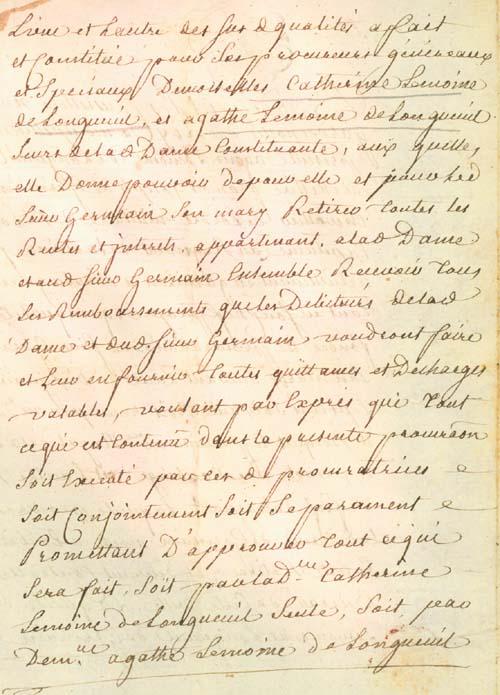 L'une et Lautre des sus d qualités a fait
et Constitué pour Ses procureurs généreaux
et Speciaux Demoiselles Catherine Lemoine
de Longueuil, et agathe Lemoine de Longueuil
seurs de lad Dame Constituante, aux quelles
elle Donne pouvoir de pour elle et pour led
Sieur Germain Son mary Retirer toutes les
Rentes et jnterets, appartenant, a lad Dame
et aud Sieur Germain Ensemble Recevoir tous
Les Remboursements que les Debiteurs de lad
Dame et dud. Sieur Germain voudront faire
et Leur en fournir toutes quittames et Decharges
valables, voulant par Exprés que tout
ce qui est Contenu dans la presente procuraõn
Soit Executé par ces d procuratrices
Soit Conjointement Soit Separament
Promettant D'approuver tout ce qui
Sera fait, Soit par lad lle Catherine
Lemoine de Longueuil Seule, Soit par
Dem.lle agathe Lemoine de Longueuil